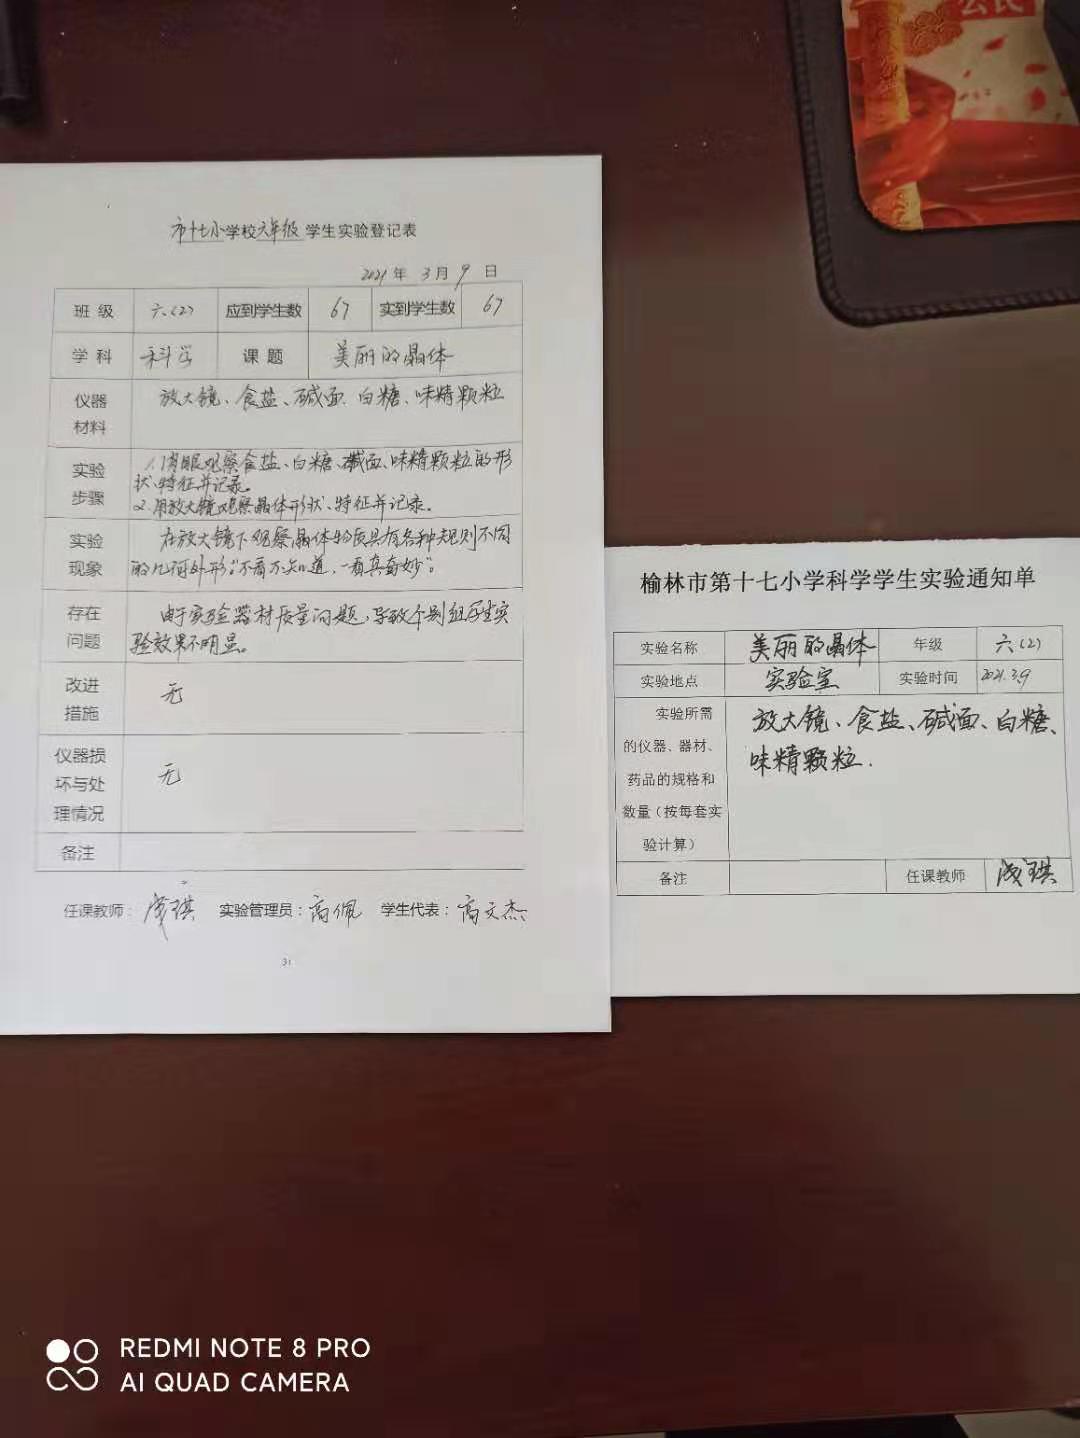 公民
市十七小学校六年级学生实验登记表
2021年 3月 9日
班级 六.(2) 应到学生数 67 实到学生数 67
学科 科学 课题 美丽的晶体
仪器材料 放大镜、食盐、碱面、白糖、味精颗粒
实验步骤
1.用眼观察食盐、白糖、碱面、味精颗粒的形
状、特征并记录。
2.用放大镜观察晶体形状、特征并记录。
实验现象
在放大镜下观察晶体物质具有各种规则不同
的几何外形:"不看不知道,一看真奇妙"。
存在问题
由于实验器材质量问题,导致个别组学生实
验效果不明显。
改进措施 无
仪器损坏与处理情况 无
备注
任课教师: 琪 实验管理员:高佩 学生代表:高文杰
31
榆林市第十七小学科学学生实验通知单
实验名称 美丽的晶体 年级 六(2)
实验地点 实验室 实验时间 2021.3.9
实验所需
的仪器、器材、
药品的规格和
数量(按每套实
验计算)
放大镜、食盐、碱面、白糖、
味精颗粒.
备注 任课教师 琪
REDMI NOTE 8 PRO
AI QUAD CAMERA